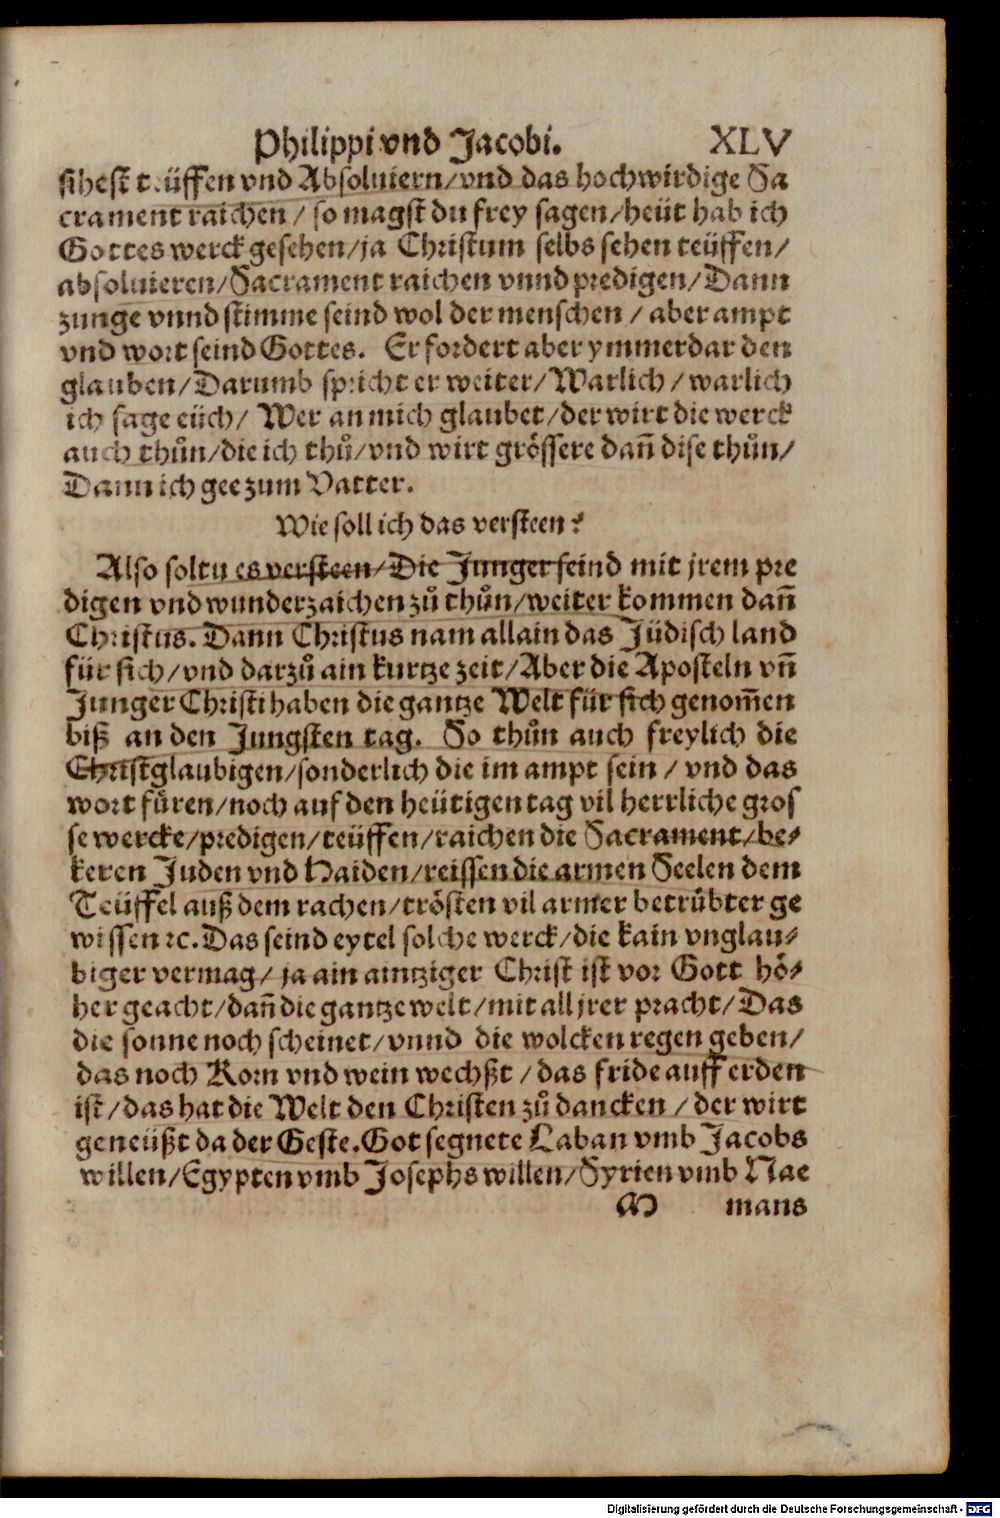 Philippi vnd Jacobi. XLV
sihest teüffen vnd Absoluiern/vnd das hochwirdige Sa
crament raichen / so magst du frey sagen/heüt hab ich
Gottes werck gesehen/ja Christum selbs sehen teüffen/
absoluieren/Sacrament raichen vnnd predigen/Dann
zunge vnnd stimme seind wol der menschen / aber ampt
vnd wort seind Gottes. Er fordert aber ymmerdar den
glauben/Darumb spricht er weiter/Warlich / warlich
ich sage eüch/ Wer an mich glaubet/der wirt die werck
auch thůn/die ich thů/vnd wirt grössere dañ dise thůn/
Dann ich gee zum Vatter.
Wie soll ich das versteen?
Also soltu es versteen/Die Junger seind mit jrem pre
digen vnd wunderzaichen zů thůn/weiter kommen dañ
Christus. Dann Christus nam allain das Jüdisch land
für sich/vnd darzů ain kurtze zeit/Aber die Aposteln vñ
Junger Christi haben die gantze Welt für sich genom̃en
biß an den Jungsten tag. So thůn auch freylich die
Christglaubigen/sonderlich die im ampt sein / vnd das
wort füren/noch auf den heütigen tag vil herrliche gros
se wercke/predigen/teüffen/raichen die Sacrament/be⸗
keren Juden vnd Haiden/reissen die armen Seelen dem
Teüffel auß dem rachen/trösten vil armer betrübter ge
wissen ꝛc. Das seind eytel solche werck/die kain vnglau⸗
biger vermag/ ja ain aintziger Christ ist vor Gott hö⸗
her geacht/dañ die gantze welt/mit all jrer pracht/Das
die sonne noch scheinet/vnnd die wolcken regen geben/
das noch Korn vnd wein wechßt / das fride auff erden
ist/das hat die Welt den Christen zů dancken / der wirt
geneüßt da der Geste. Got segnete Laban vmb Jacobs
willen/Egypten vmb Josephs willen/Syrien vmb Nae
M mans
Digitalisierung gefördert durch die Deutsche Forschungsgemeinschaft - DFG